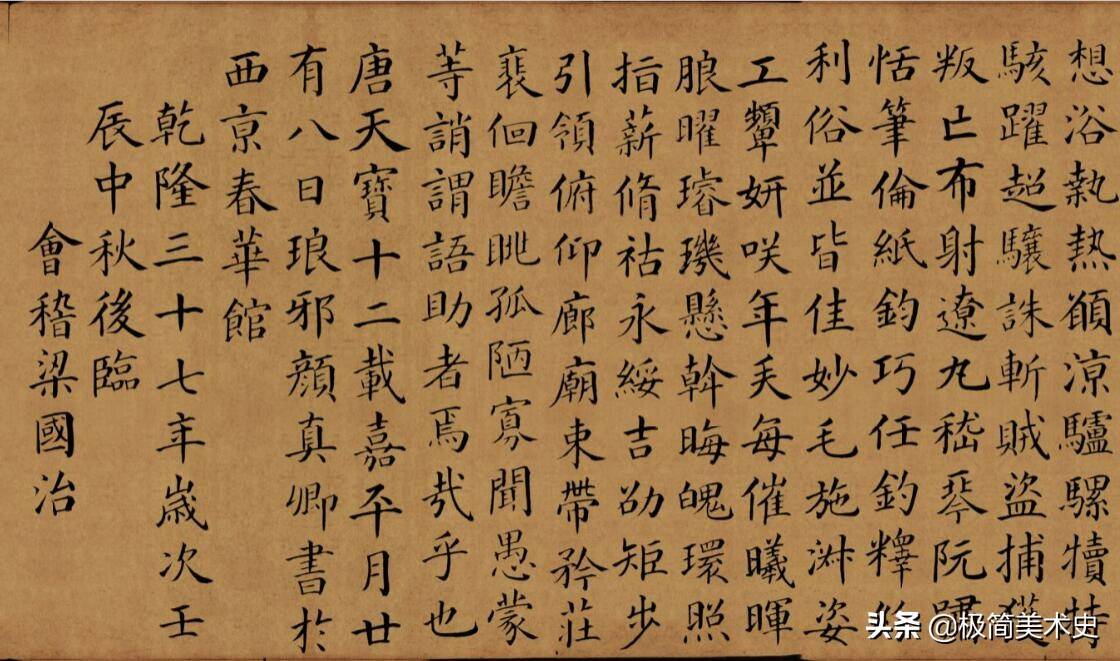 想浴執熱願涼驢騾犢特
駭躍超驤誅斬賊盜捕獲
叛亡布射遼丸嵇琴阮嘯
恬筆倫紙鈞巧任釣釋紛
利俗並皆佳妙毛施淑姿
工顰妍咲年矢每催曦暉
朗曜璿璣懸斡晦魄環照
指薪脩祜永綏吉劭矩步
引領俯仰廊廟束帶矜莊
裴佪瞻眺孤陋寡聞愚蒙
等誚謂語助者焉哉乎也
唐天寶十二載嘉平月廿
有八日琅邪顏真卿書於
西京春華館
乾隆三十七年歲次壬
辰中秋後臨
會稽梁國治
头条 @极简美术史